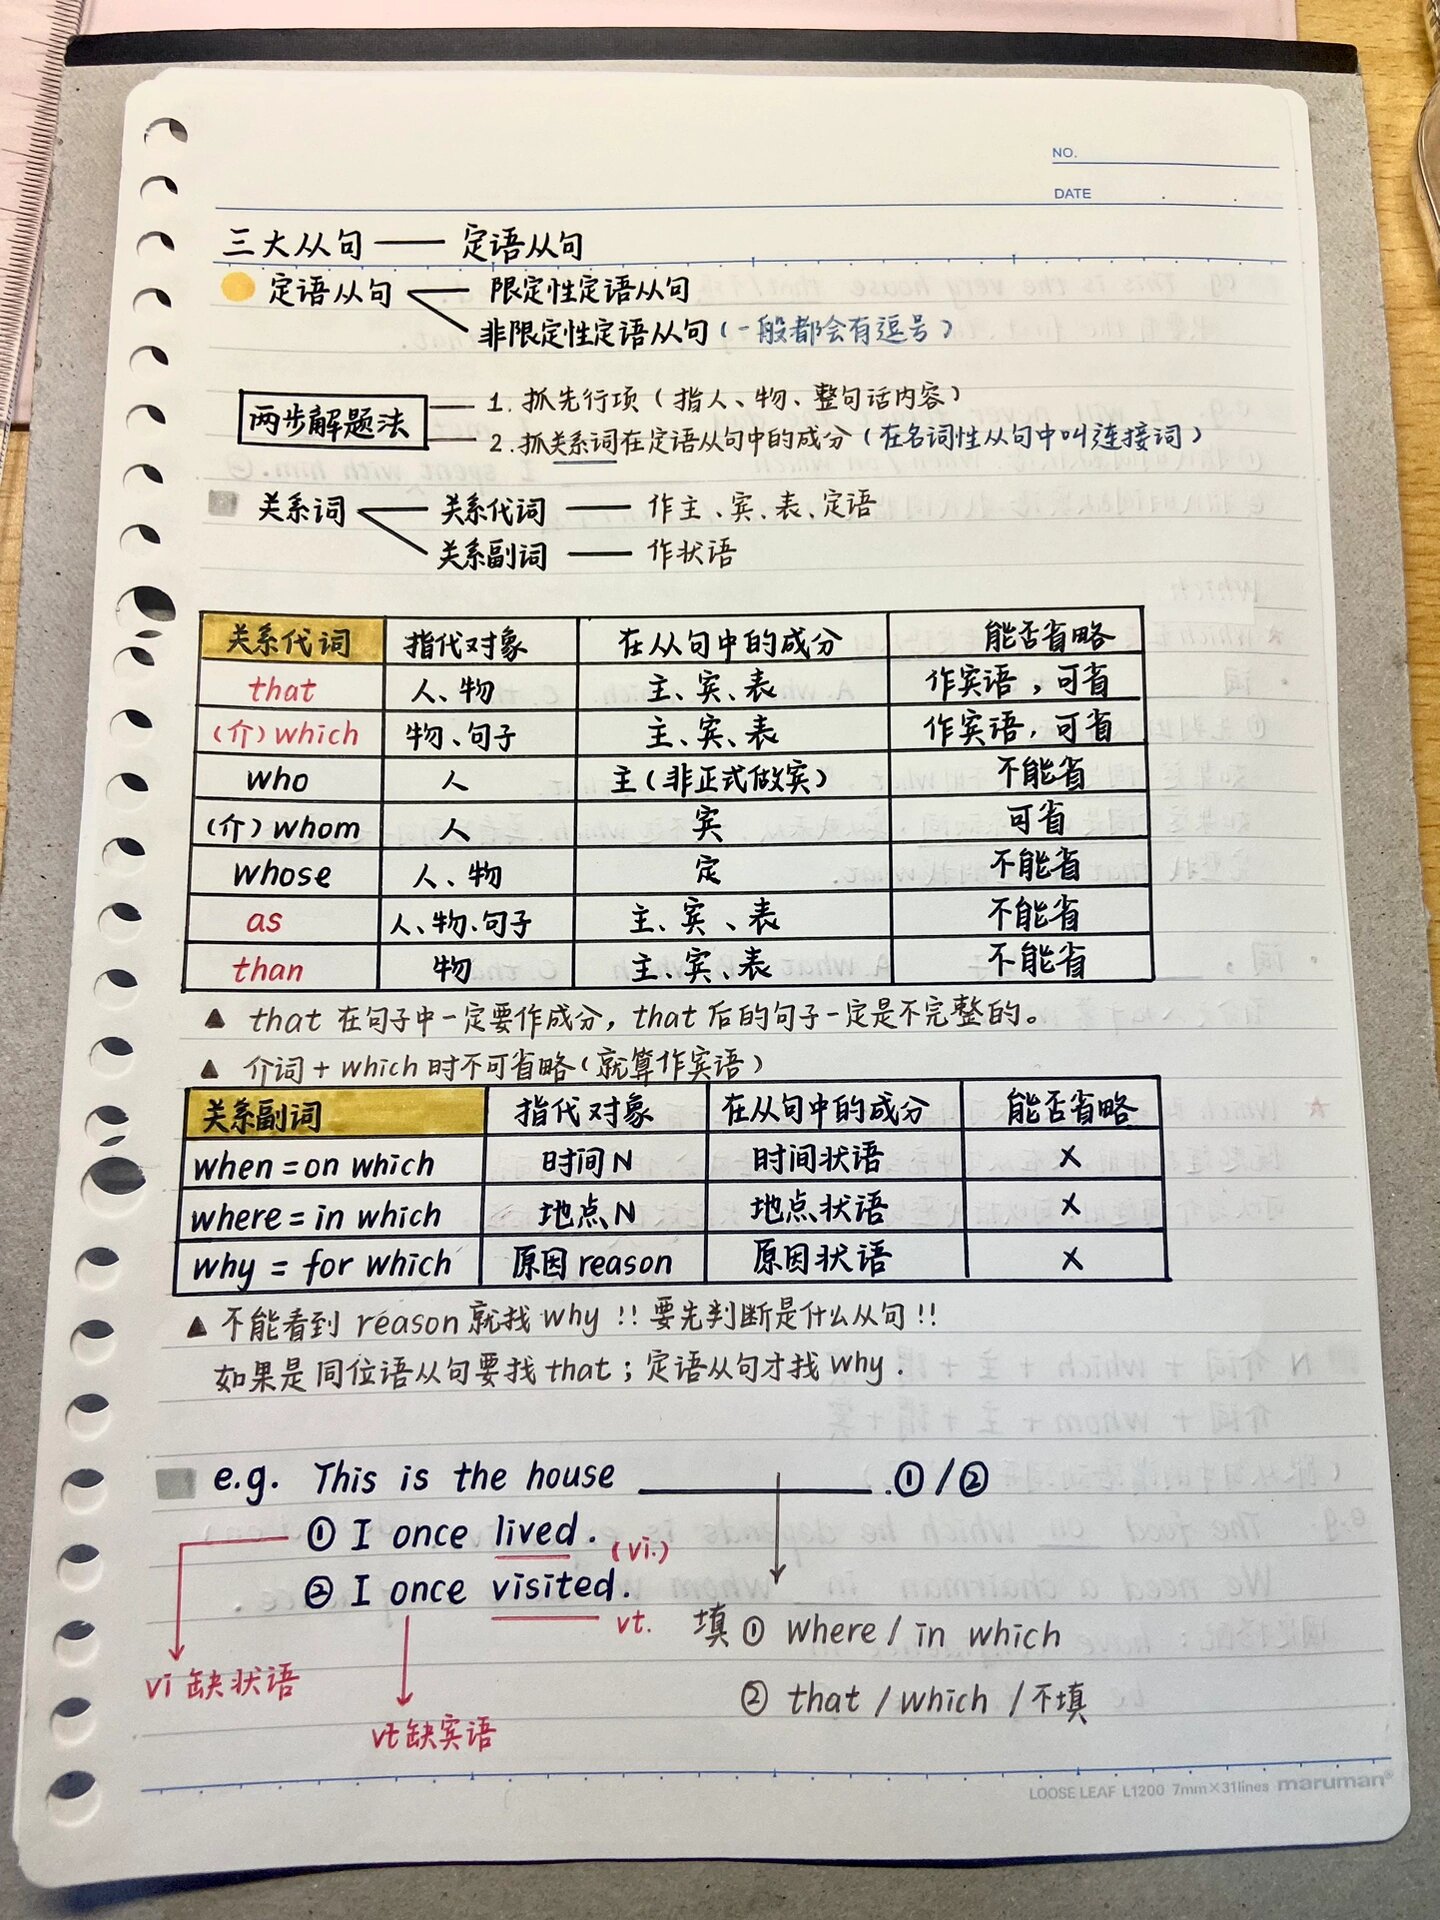 NO.
DATE
三大从句——定语从句
定语从句 限定性定语从句
非限定性定语从句(一般都会有逗号)
两步解题法 1.抓先行项(指人、物、整句话内容)
2.抓关系词在定语从句中的成分(在名词性从句中叫连接词)
关系词 关系代词——作主、宾、表、定语
关系副词——作状语
关系代词 指代对象 在从句中的成分 能否省略
that 人、物 主、宾、表 作宾语,可省
(介)which 物、句子 主、宾、表 作宾语,可省
who 人 主(非正式做宾) 不能省
(介)whom 人 宾 可省
whose 人、物 定 不能省
as 人、物、句子 主、宾、表 不能省
than 物 主、宾、表 不能省
▲ that在句子中一定要作成分,that后的句子一定是不完整的。
▲ 介词+which时不可省略(就算作宾语)
关系副词 指代对象 在从句中的成分 能否省略
when=on which 时间N 时间状语 ×
where=in which 地点N 地点状语 ×
why=for which 原因reason 原因状语 ×
▲不能看到reason就找why!!要先判断是什么从句!!
如果是同位语从句要找that;定语从句才找why.
e.g. This is the house ________.①/②
① I once lived. (vi.)
② I once visited. vt.
填① where/in which
vi缺状语
② that/which/不填
vt缺宾语
LOOSE LEAF L1200 7mm×31lines maruman®